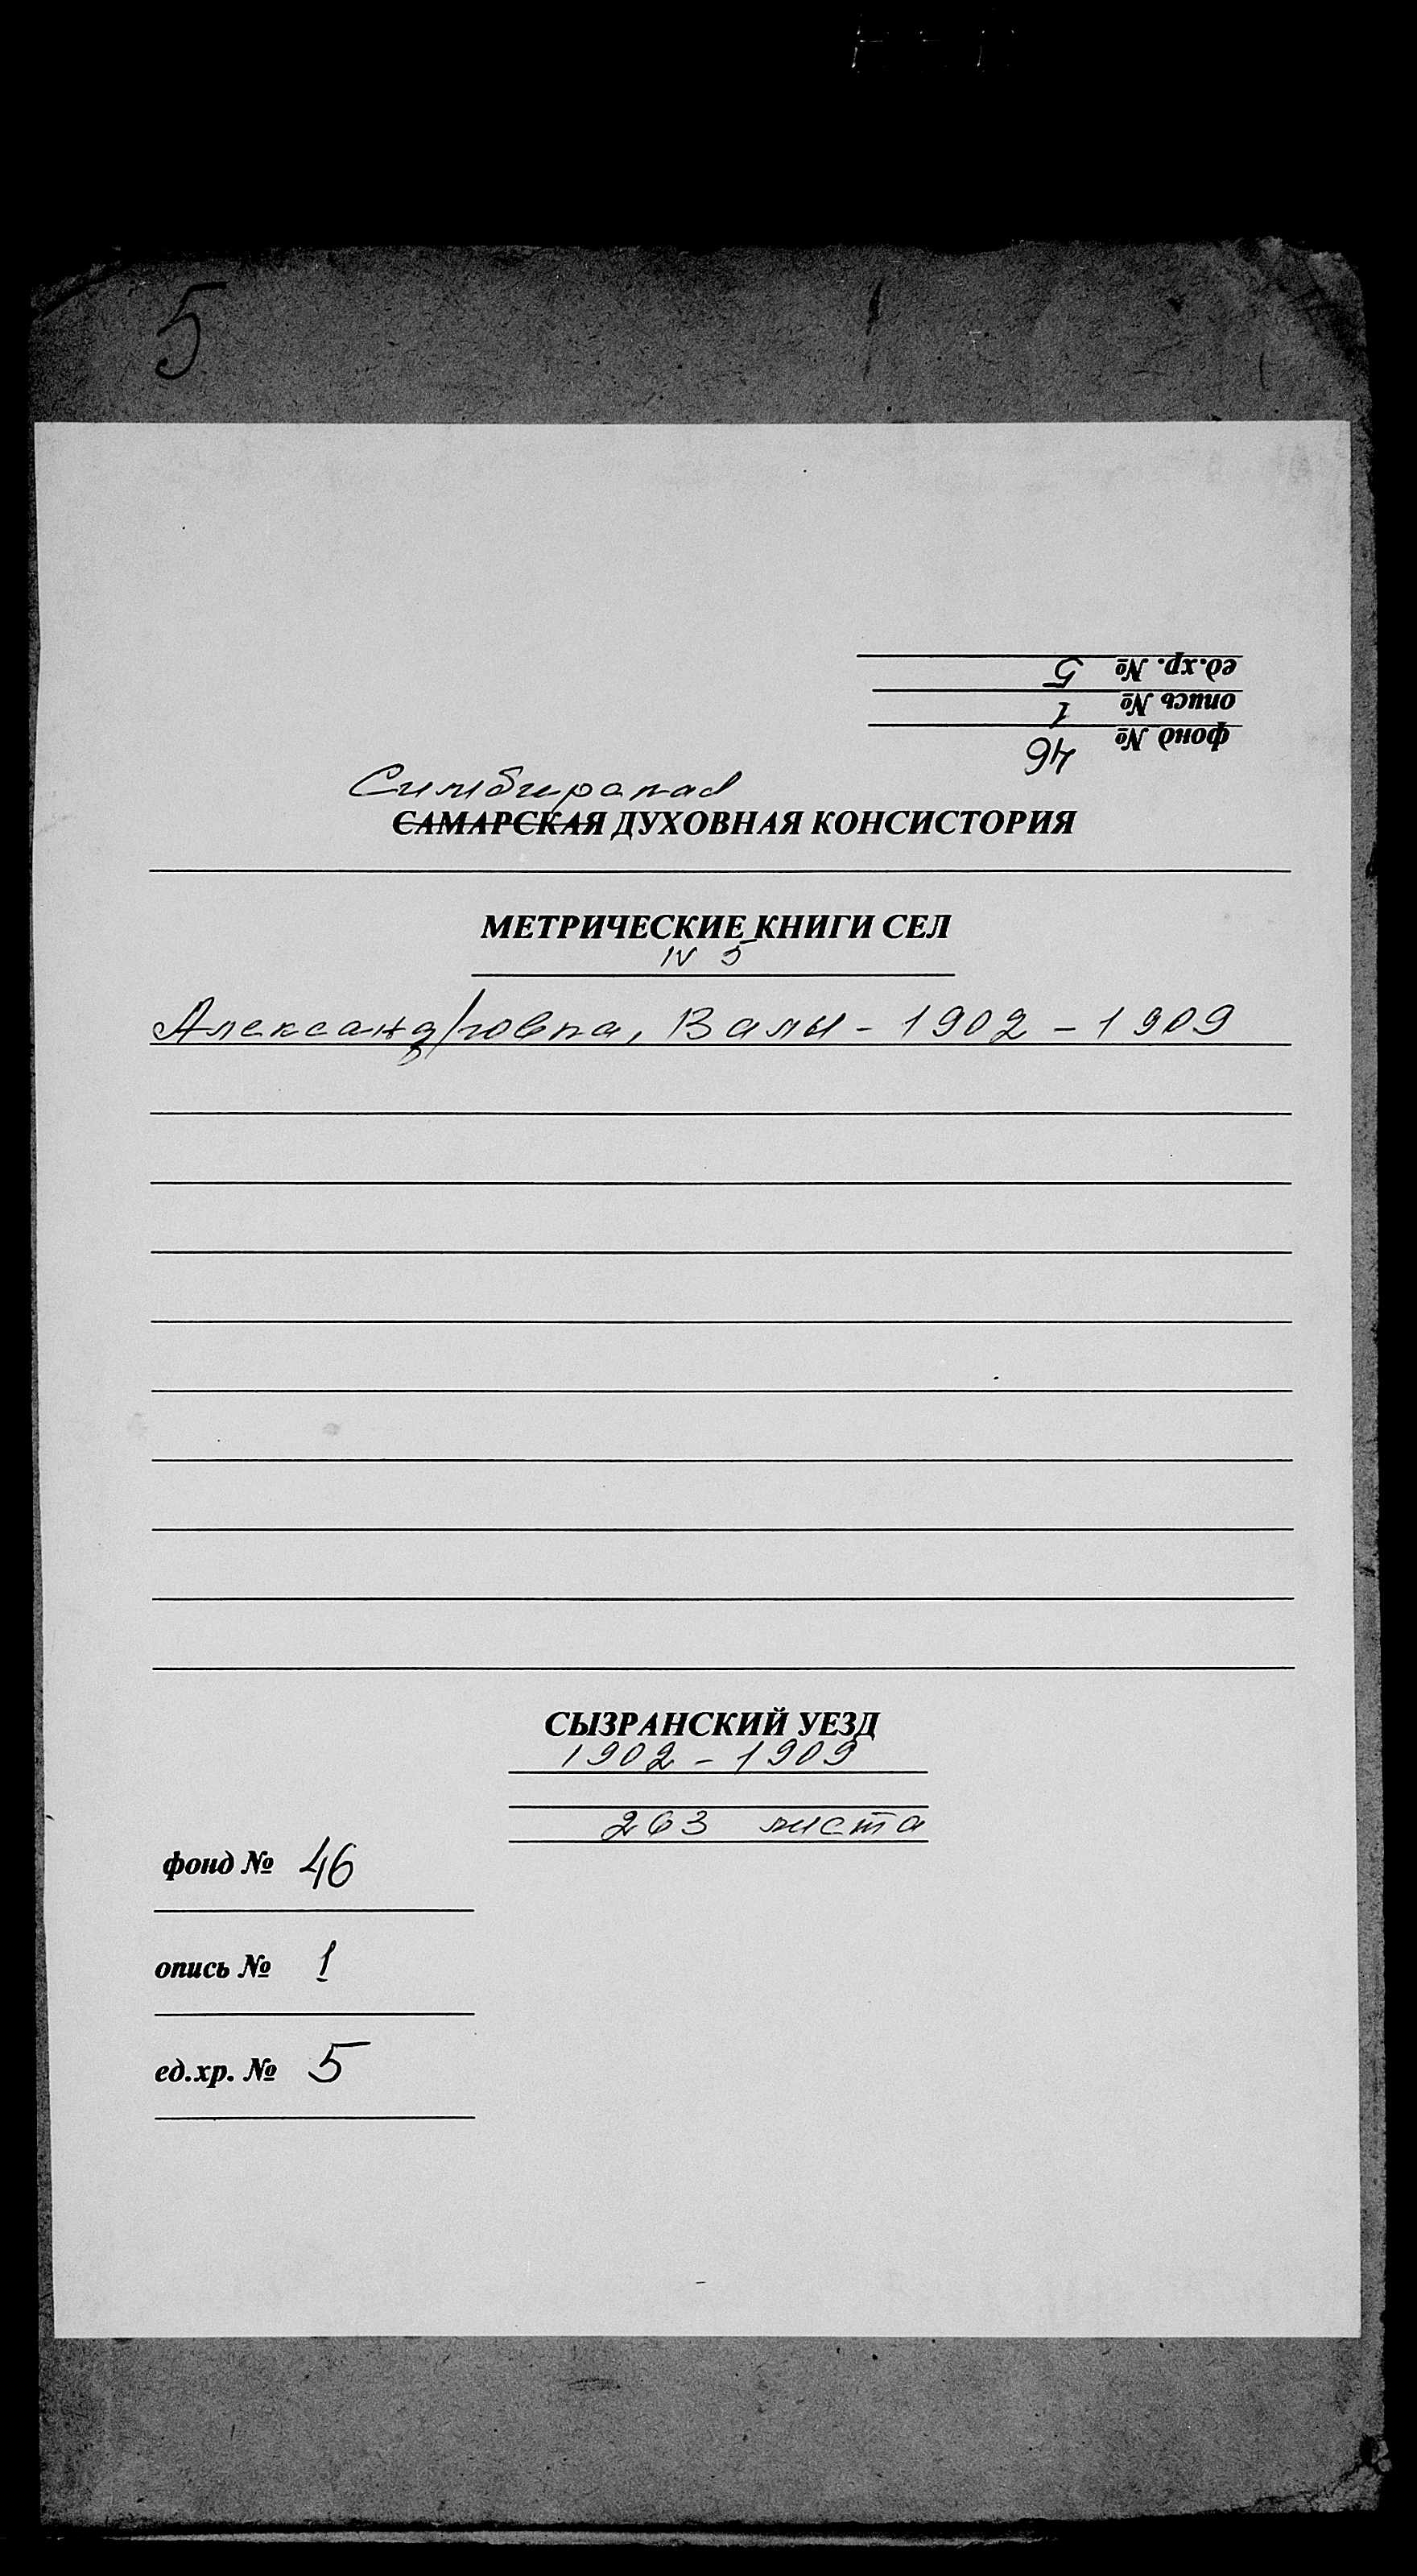 5
ед.хр. № 5
опись № 1
фонд № 46
Симбирская
САМАРСКАЯ ДУХОВНАЯ КОНСИСТОРИЯ
МЕТРИЧЕСКИЕ КНИГИ СЕЛ
N 5
Александровка, Валы - 1902 - 1909
СЫЗРАНСКИЙ УЕЗД
1902 - 1909
263 листа
фонд № 46
опись № 1
ед.хр. № 5